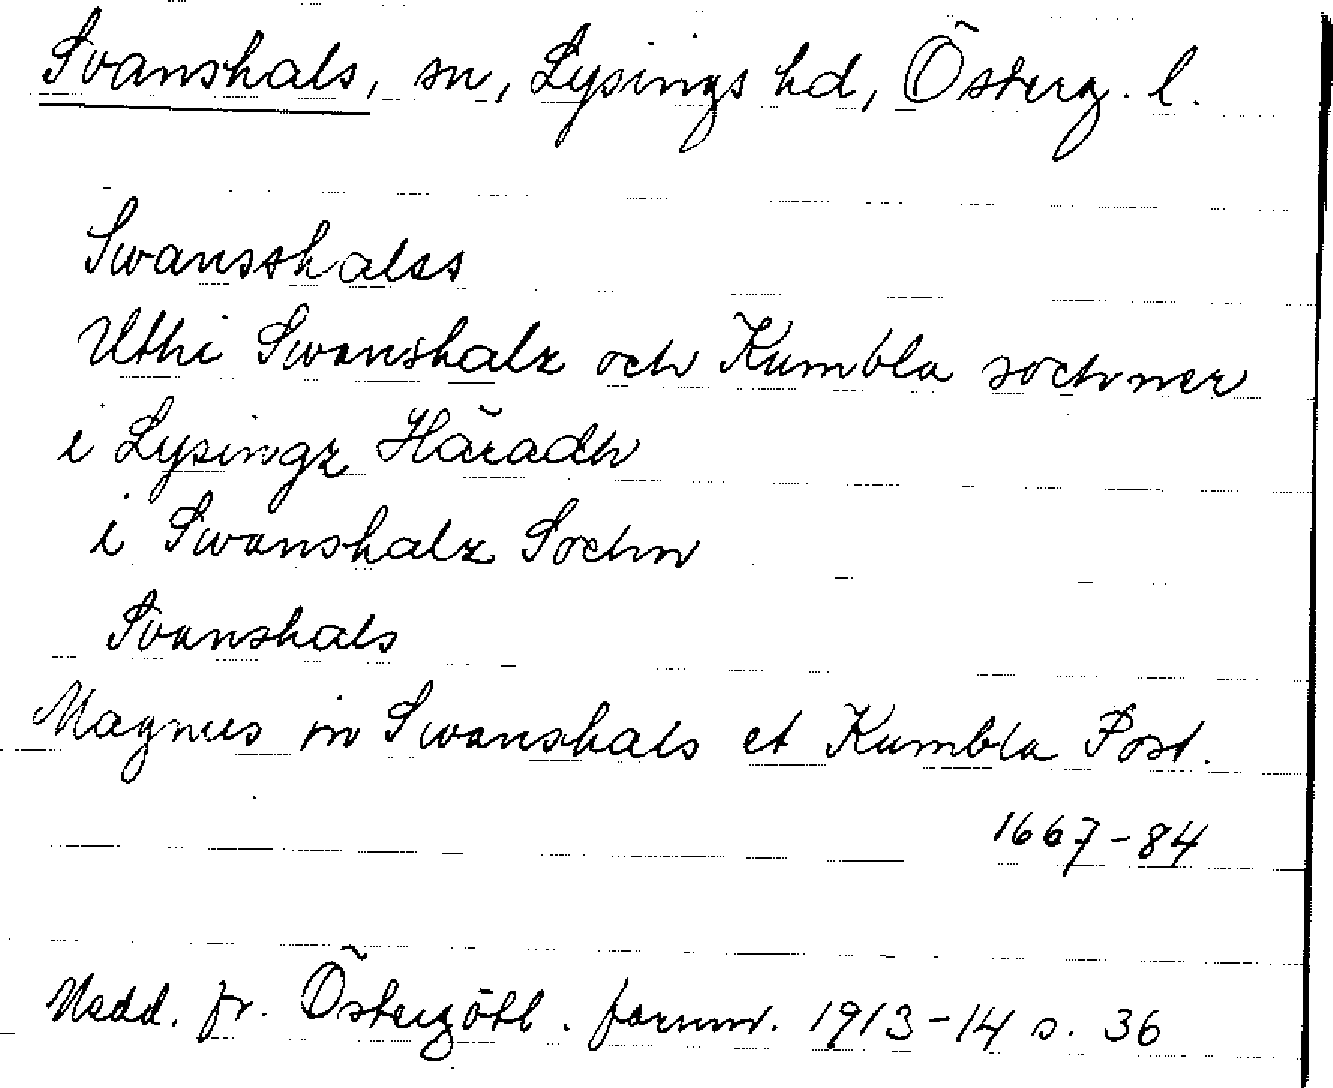 Svanshals, sn, Lysings hd, Österg. l.
Swansshalss
Uthi Swanshalz och Kumbla sochner
i Lysingz Häradh
i Swanshalz Sochn
Svanshals
Magnus in Swanshals et Kumbla Past.
1667-84
Medd. fr. Östergötl. fornm. 1913-14 s. 36